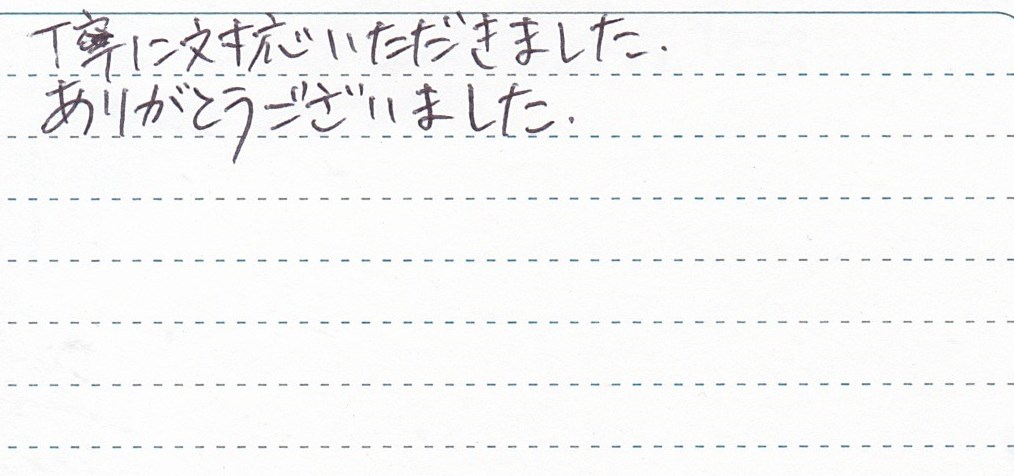 丁寧に対応いただきました.
ありがとうございました.